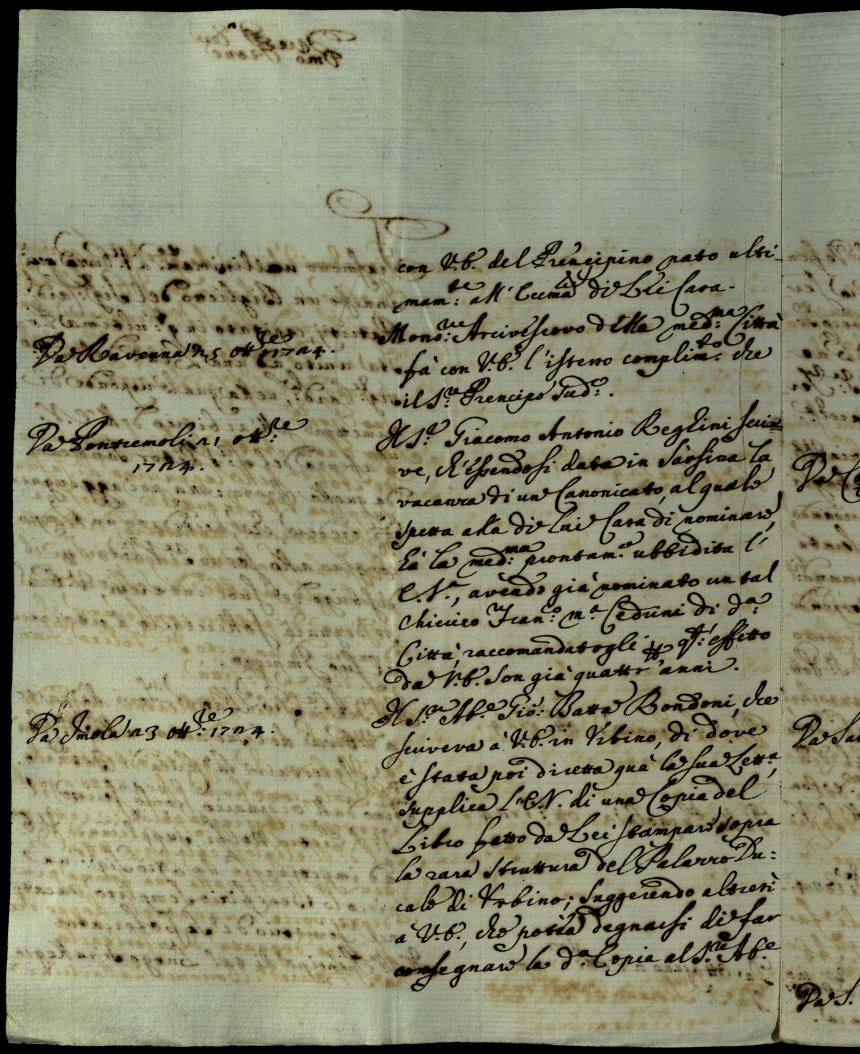 con V.E. del Prencipino nato ulti-
mam:te all' Eccma di Lei Casa.
Da Ravenna 25 ott:re 1724.
Mons:re Arcivescovo della med:ma Città
fà con V.E. l'istesso complim:to che
il S.r Prencipe sud:o.
Da Pontremoli 21 ott:re
1724.
Il S.r Giacomo Antonio Reghini scri=
ve, ch'essendosi data in Sarsina la
vacanza di un Canonicato, al quale
spetta alla di lui Casa di nominare,
hà la med:ma prontam:e ubbidita l'
E.V., avendo già nominato un tal
Chierico Fran:o M.a Cedrini di d:a
Città, raccomandatogli per q:t' effetto
da V.E. son già quattr' anni.
Da Imola 23 ott:re 1724.
Il S.r Ab.e Gio: Batta Bondoni, che
scriveva à V.E. in Vrbino, di dove
è stata poi diretta quà la sua Lett.a,
supplica l'E.V. di una Copia del
Libro fatto da Lei stampare sopra
la rara struttura del Palazzo Du=
cale di Vrbino; suggerendo altresì
à V.E., che potrà degnarsi di far
consegnare la d.a Copia al S.re Ab.e
Da S.